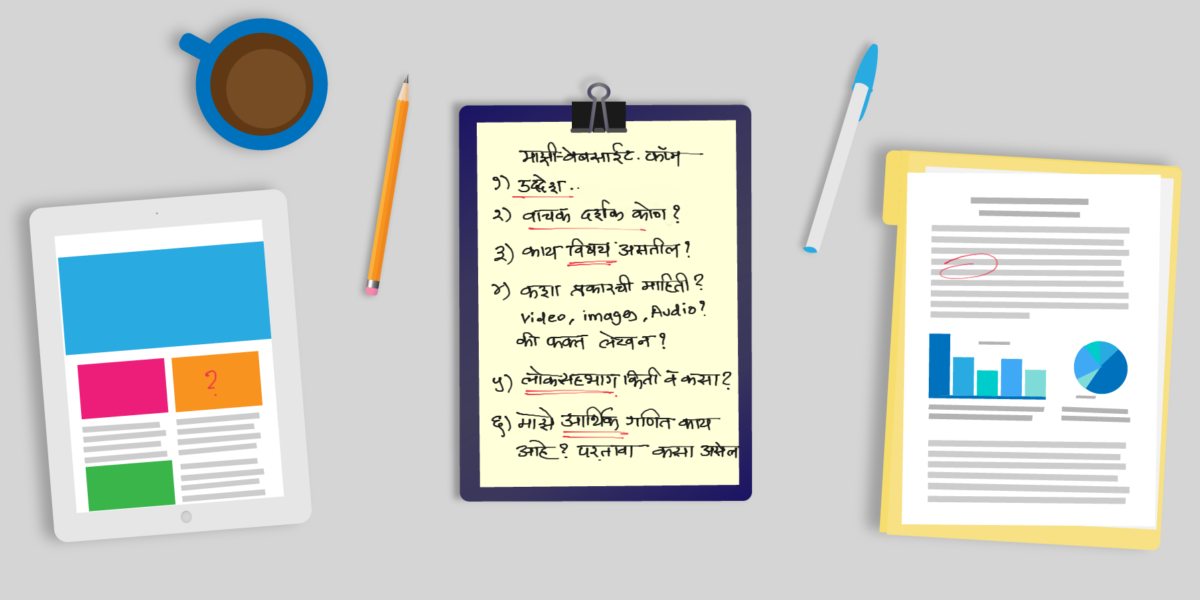 माझी-वेबसाईट.कॉम
१) उद्देश..
२) वाचक दर्शक कोण?
३) काय विषय असतील?
४) कशा प्रकारची माहिती?
video, images, Audio?
की फक्त लेखन?
५) लोकसहभाग किती वं कसा?
६) माझे आर्थिक गणित काय
आहे? परतावा कसा असेल
?